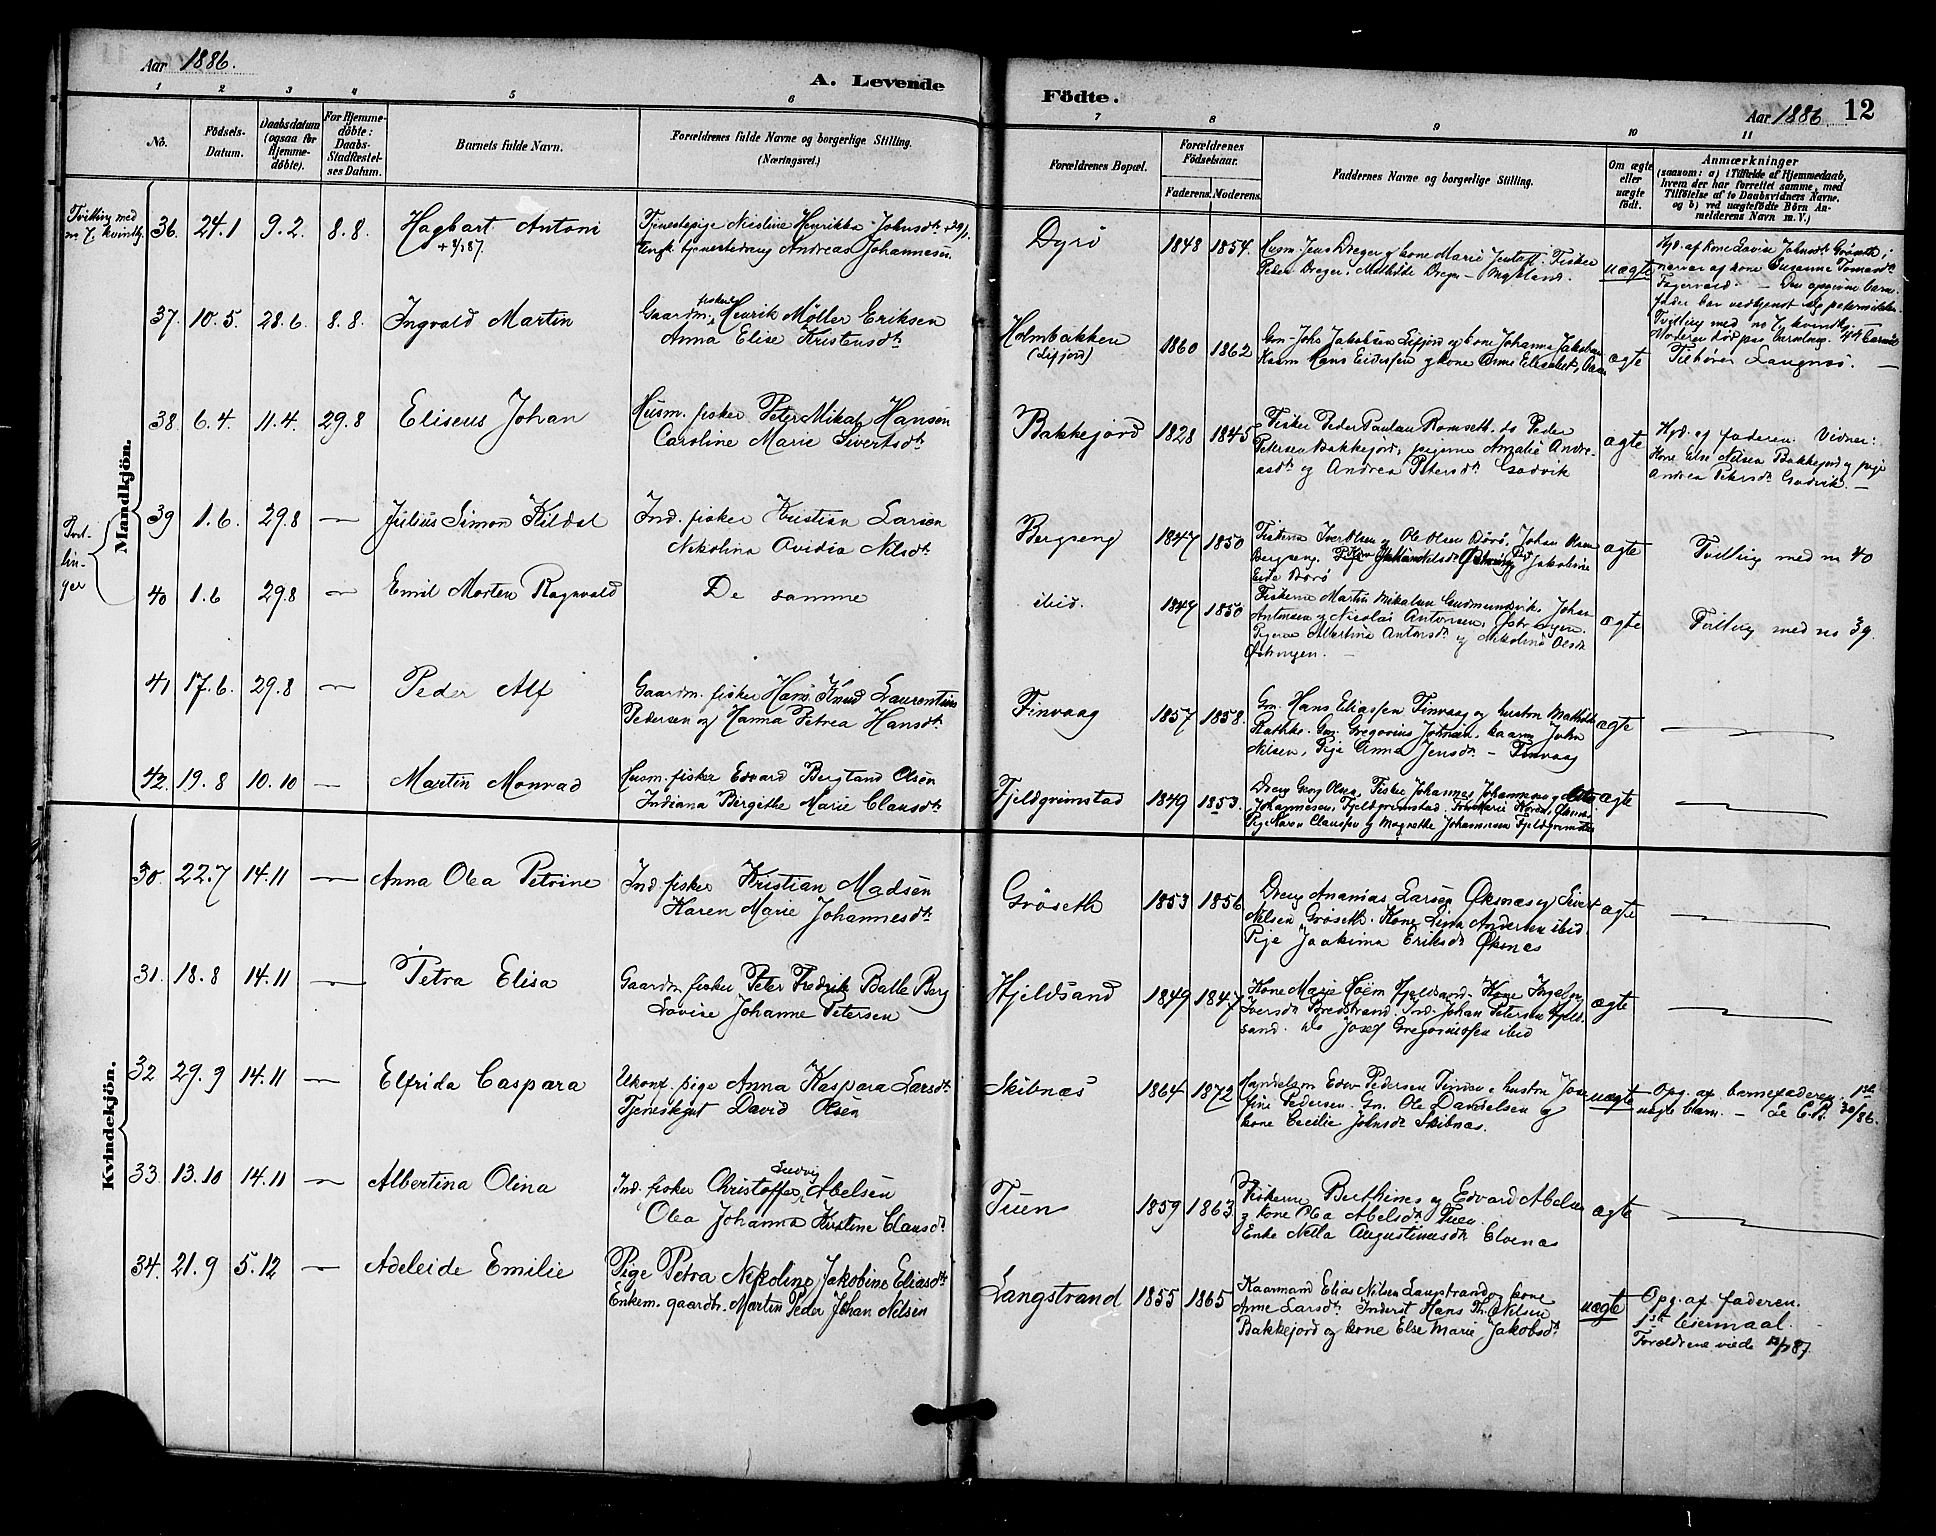 Aar 1886.
A. Levende Födte.
Aar 1886. 12
1 2 3 4 5 6 7 8 9 10 11
No.
Födsels-Datum.
Daabsdatum (ogsaa for Hjemme-döbte).
For Hjemme-döbte: Daabs-Stadfæstel-ses Datum.
Barnets fulde Navn.
Forældrenes fulde Navne og borgerlige Stilling. (Næringsvei.)
Forældrenes Bopæl.
Forældrenes Födselsaar.
Faderens. Moderens.
Faddernes Navne og borgerlige Stilling.
Om ægte eller uægte født.
Anmærkninger
(saasom: a) i Tilfælde af Hjemmedaab, hvem der har forrettet samme, med Tilföielse af to Daabsvidners Navne, og b) ved uægtefödte Börn An-melderens Navn m. V.)
Mandkjön.
Tvilling med no 7 kvindkj.
36. 24.1 9.2. 8.8. Hagbart Antoni
+ 4/1 87.
Tjenestepige Nicolina Henrikka Johnsdtr
Ungk. tjenestedreng Andreas Johannesen
Dyrö 1848 1854.
Husm. Jens Dreyer og kone Marie Jentoft, Fisker
Peder Dreyer, Mathilde Dreyer - Mykland.
uægte
Hjd. af kone Lovise Johnsdtr Gröseth i
nærvær af kone Susanne Tomasdtr
Tvilling med no 7 kvindkj.
37. 10.5. 28.6. 8.8. Ingvald Martin
Gaardm. fisker Henrik Möller Eriksen
Anna Elise Kristensdtr
Holmbakken
(Sifjord)
1860 1862
Gm. Johs Jakobsen Sifjord og kone Johanna Jakobsen
Kaarm Hans Eidessen og kone Anne Elisabet
ægte
Tilhører Langnes. —
38. 6.4. 11.4. 29.8 Eliseus Johan
Husm. fisker Peter Mikal Hansen
Caroline Marie Sivertsdtr
Bakkejord 1828 1845
Fisker Peder Paulsen Romseth. do Peder
Petersen Bakkejord, pigerne Amalie Andre-
asdtr og Andrea Petersdtr Godvik
ægte
Hjd. af faderen. Vidner:
Kone Else Nilsen Bakkejord og pige
Andrea Petersdtr Godvik. —
Tvil-
lin-
ger
39 1.6. 29.8 — Julius Simon Kildal
Ind. fisker Kristian Larsen
Nikolina Ovidia Nilsdtr
Bergseng 1847 1850
Fiskerne Iver Olsen og Ole Olsen Börö, Johan Olsen
Bergseng.
Eide Börö
ægte Tvilling med no 40
40 1.6 29.8 — Emil Morten Ragnvald
De samme
ibid. 1847 1850
Fiskerne Martin Mikalsen Gudmundsvik, Johan
Antonsen og Nicolai Antonsen,
Pigerne Albertine Antonsdtr og Nikoline Olsdtr
ægte Tvilling med no 39.
41 17.6. 29.8 — Peder Alf
Gaardm. fisker Hans Knud Laurentius
Pedersen og Hanna Petrea Hansdtr
Finvaag 1857 1858.
Gm. Hans Eliassen Finvaag og hustru Mathilde
Rathke. Gm. Gregorius Johnsen, kaarm John
Nilsen, Pige Anna Jensdtr - Finvaag
ægte —
42. 19.8 10.10 — Martin Monrad
Husm. fisker Edvard Bergland Olsen
Indiana Birgithe Marie Clausdtr
Fjeldgrimstad 1849 1853.
Dreng Georg Olsen, Fisker Johannes Johannesen
Johannesen, Fjeldgrimstad.
Pige Karen Claussen og Magrethe Johannesen Fjeldgrimstad
ægte —
Kvindekjön.
30. 22.7 14.11 — Anna Olea Petrine
Ind. fisker Kristian Madsen
Karen Marie Johannesdtr
Gröseth 1853 1856
Dreng Ananias Larsen Øksnæs og Sivert
Nilsen Gröseth. Kone Lina Andersen ibid.
Pige Jaakima Eriksdtr Øksnes
ægte —
31. 18.8 14.11 — Petra Elisa
Gaardm. fisker Peter Fredrik Balle Berg
Lovise Johanne Petersen
Hjeldsand 1849 1847
Kone Marie Hjeldsand. Kone Ingebor
Iversdtr Bredstrand. Ind. Johan Petersen Hjeld-
sand. do Josef Gregoriussen ibid
ægte —
32 29.9 14.11 — Elfrida Caspara
Ukonf. pige Anna Kaspara Larsdtr
Tjenestgut David Olsen
Skibnæs 1864 1872
Handelsm Edv. Pedersen og hustru Jose-
fine Pedersen. Gm. Ole Danielsen og
kone Cecilie Johnsdtr Skibnæs.
uægte
Opg. af barnefaderen. 1ste
uægte barn. —
33. 13.10 14.11 — Albertina Olina
Ind. fisker Christoffer Ludvig Abelsen
Olea Johanna Kirstine Clausdtr
Tuen 1859 1863
Fiskerne Berthines og Edvard Abelsen
og kone Olea Abelsdtr Tuen.
Enke Nella Augustinusdtr Elvenæs
ægte —
34. 21.9 5.12 — Adeleide Emilie
Pige Petra Nikoline Jakobine Eliasdtr
Enkem. gaardbr. Martin Peder Johan Nilsen
Langstrand 1855 1865
Kaarmand Elias Nilsen Langstrand og kone
Anne Larsdtr Inderst Hans Th. Nilsen
Bakkejord og kone Else Marie Jakobsdtr
uægte
Opg. af faderen.
1ste leiermaal.
Forældrene viede 12/7 87.